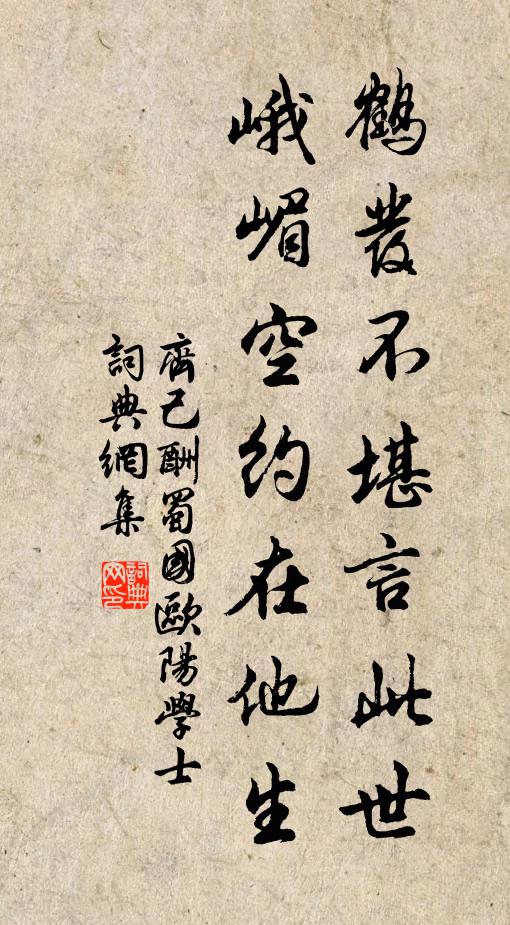 鶴發不堪言此世
峨嵋空約在他生
齊己酬蜀國歐陽學士
詞典網集
詞典
网印